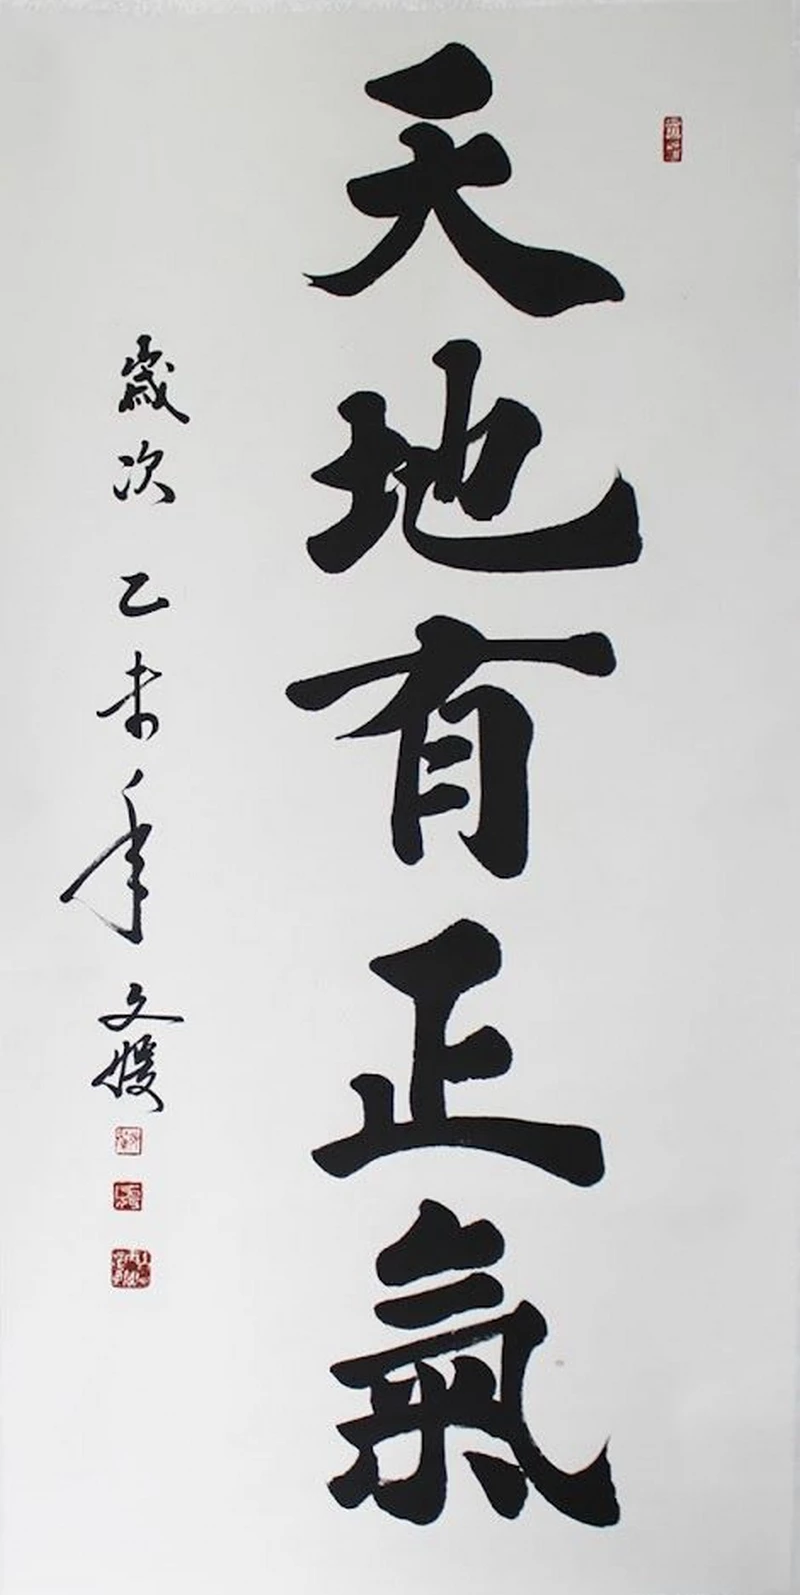 天地有正氣
歲次乙未年文媛